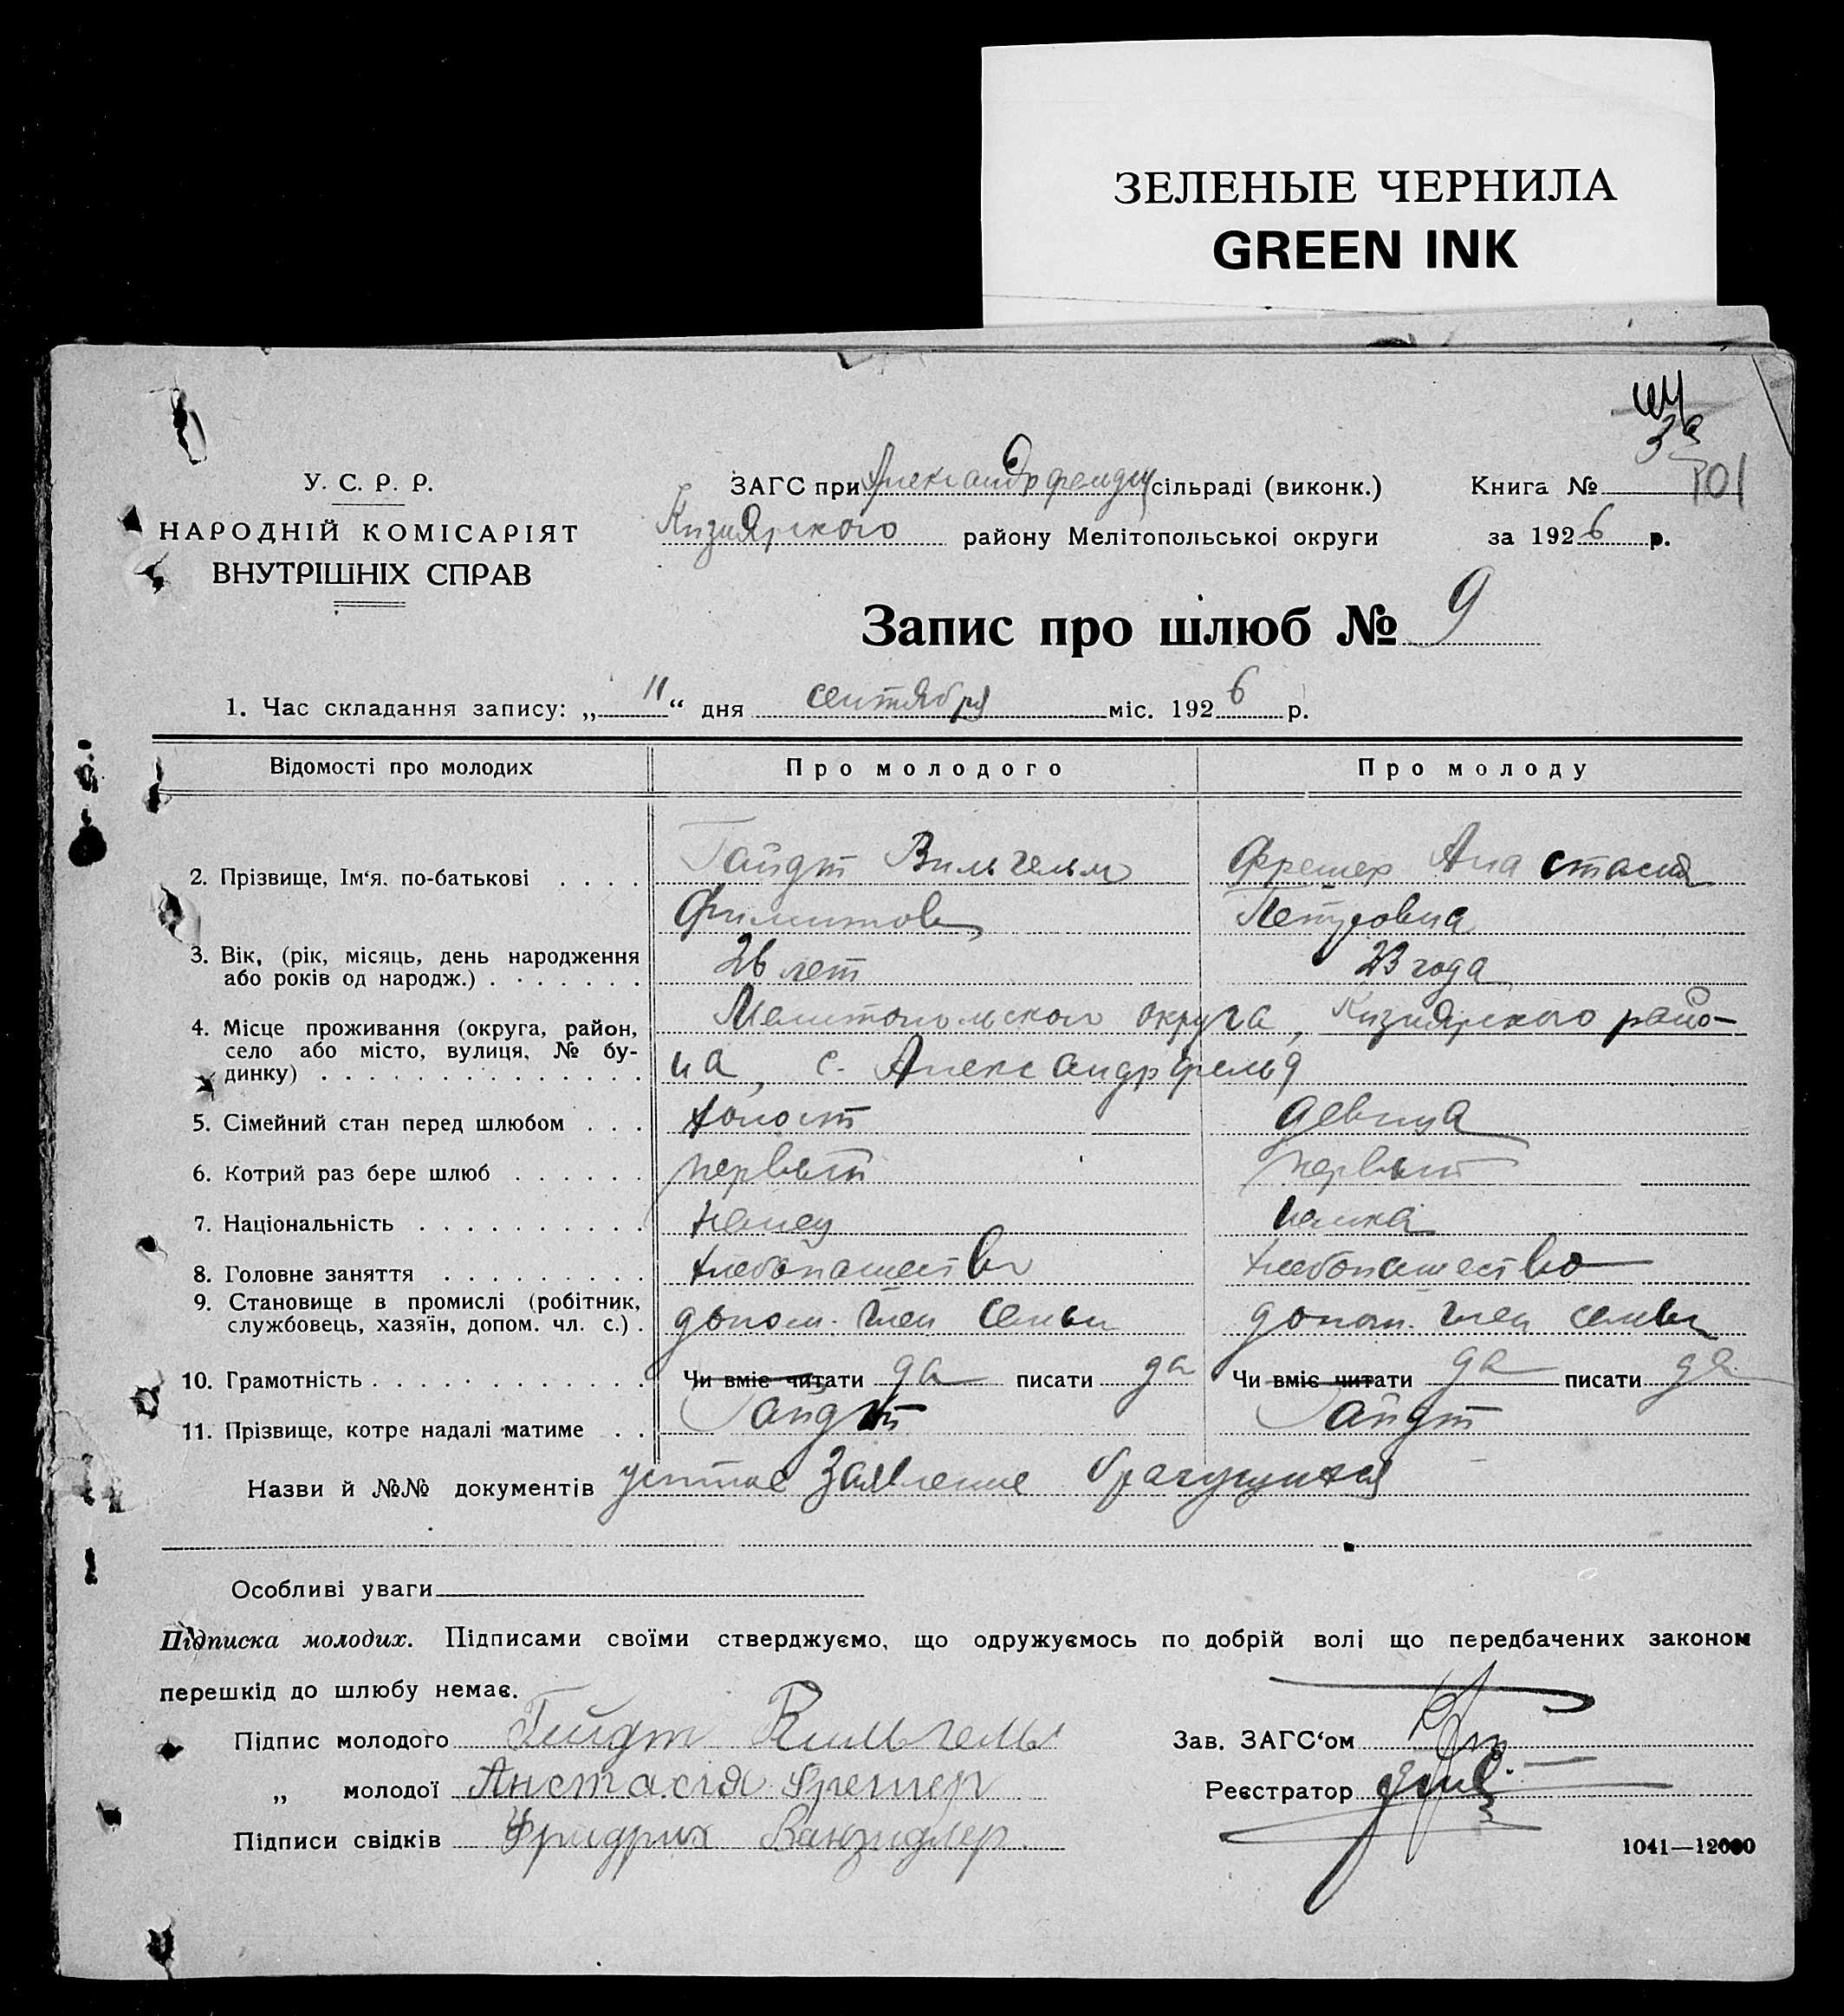 ЗЕЛЕНЫЕ ЧЕРНИЛА
GREEN INK
101
У. С. Р. Р.
НАРОДНІЙ КОМІСАРІЯТ
ВНУТРІШНІХ СПРАВ
ЗАГС при Александрфельд сільраді (виконк.)
Кизиярского району Мелітопольської округи
Книга №
за 1926 р.
Запис про шлюб № 9
1. Час складання запису: „11“ дня сентября міс. 1926 р.
Відомості про молодих Про молодого Про молоду
2. Прізвище, Ім‘я, по-батькові Гайдт Вильгельм Анастасия
Петровна
3. Вік, (рік, місяць, день народження або років од народж.) 26 лет 23 года
4. Місце проживання (округа, район, село або місто, вулиця, № будинку) Мелитопольского округа, Кизиярского райо-
на, с. Александрфельд
5. Сімейний стан перед шлюбом холост девица
6. Котрий раз бере шлюб первый первый
7. Національність немец немка
8. Головне заняття хлебопашество хлебопашество
9. Становище в промислі (робітник, службовець, хазяїн, допом. чл. с.) допом. член семьи допом. член семьи
10. Грамотність Чи вміє читати да писати да Чи вміє читати да писати да
11. Прізвище, котре надалі матиме Гайдт Гайдт
Назви й №№ документів устное заявление брачущихся
Особливі уваги
Підписка молодих. Підписами своїми стверджуємо, що одружуємось по добрій волі що передбачених законом
перешкід до шлюбу немає.
Підпис молодого Гайдт Вильгельм
Зав. ЗАГС‘ом
„ молодої Анстасия
Реєстратор
Підписи свідків Фридрих
1041—12000